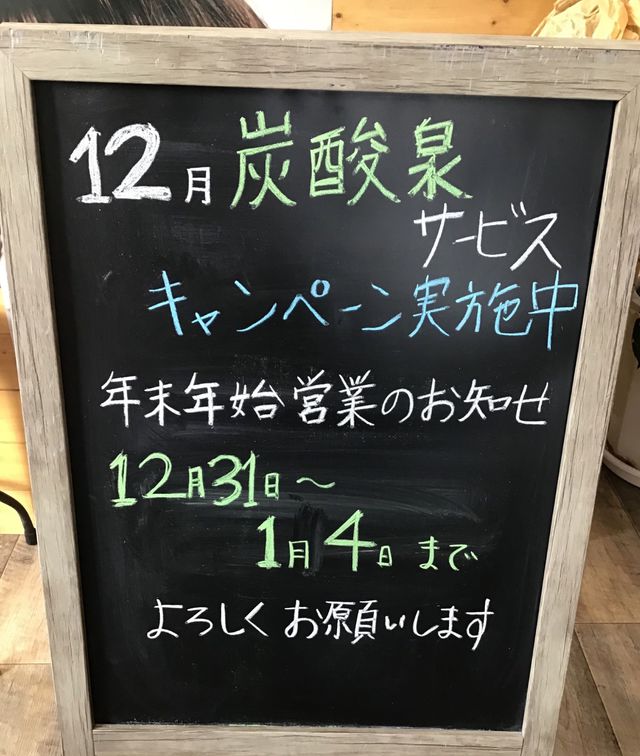 12月炭酸泉
サービス
キャンペーン実施中
年末年始営業のお知せ
12月31日〜
1月4日まで
よろしくお願いします